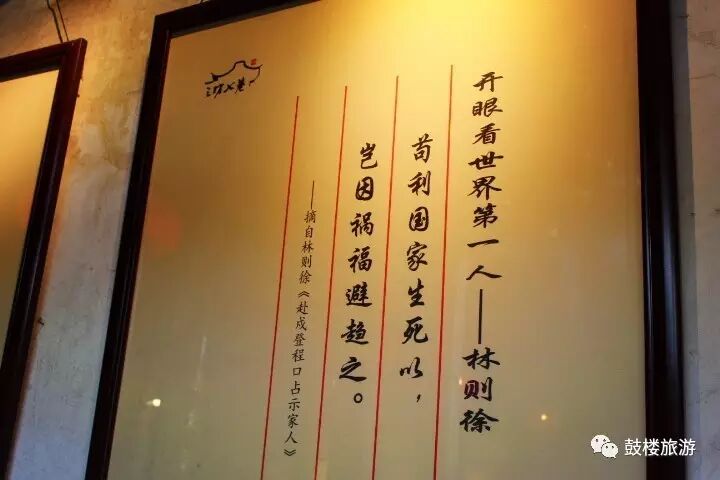 开眼看世界第一人——林则徐
苟利国家生死以，
岂因祸福避趋之。
——摘自林则徐《赴戍登程口占示家人》
三坊七巷
鼓楼旅游